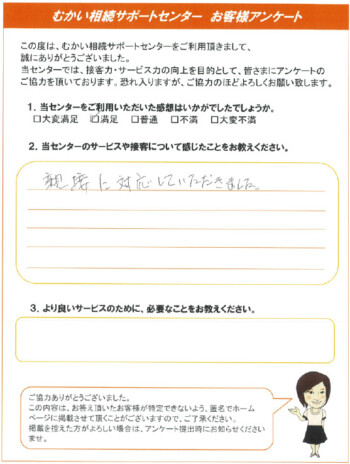 むかい相続サポートセンター お客様アンケート
この度は、むかい相続サポートセンターをご利用頂きまして、
誠にありがとうございました。
当センターでは、接客力・サービス力の向上を目的として、皆さまにアンケートの
ご協力を頂いております。恐れ入りますが、ご協力のほどよろしくお願い致します。
1. 当センターをご利用いただいた感想はいかがでしたでしょうか。
□大変満足 ☑満足 □普通 □不満 □大変不満
2. 当センターのサービスや接客について感じたことをお教えください。
親接に対応していただきました。
3. より良いサービスのために、必要なことをお教えください。
ご協力ありがとうございました。
この内容は、お答え頂いたお客様が特定できないよう、匿名でホーム
ページに掲載させて頂くことがございますので、ご了承ください。
掲載を控えた方がよろしい場合は、アンケート提出時にお知らせください
ませ。